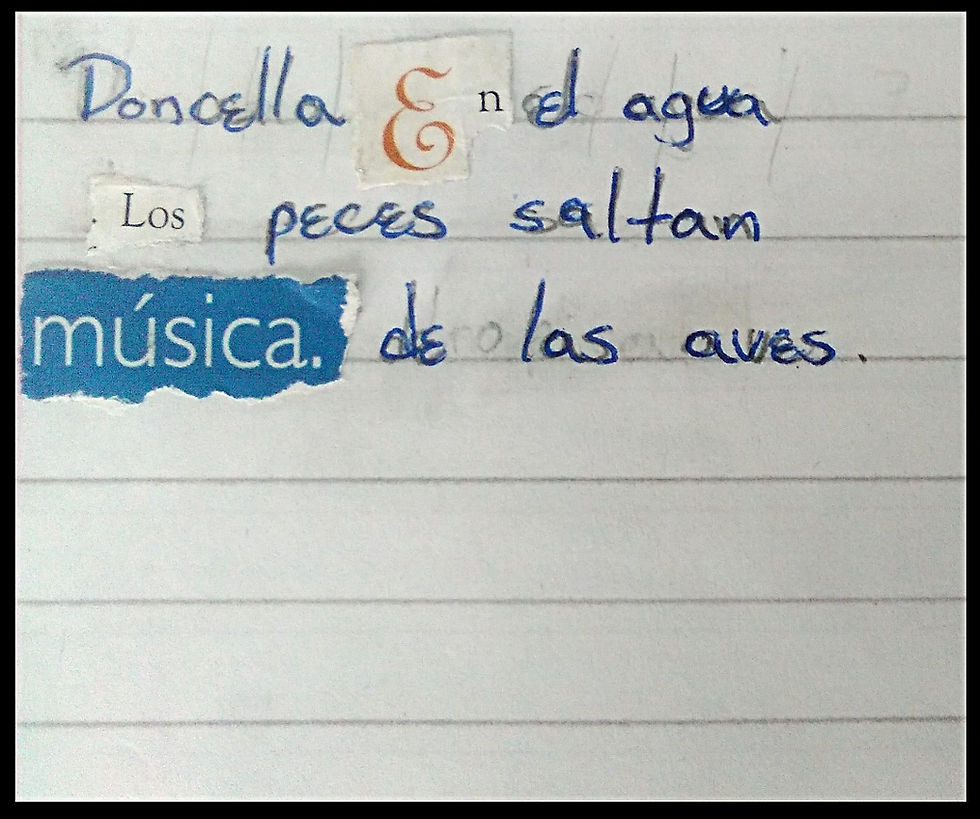 Doncella En el agua
Los peces saltam
música. de las aves.